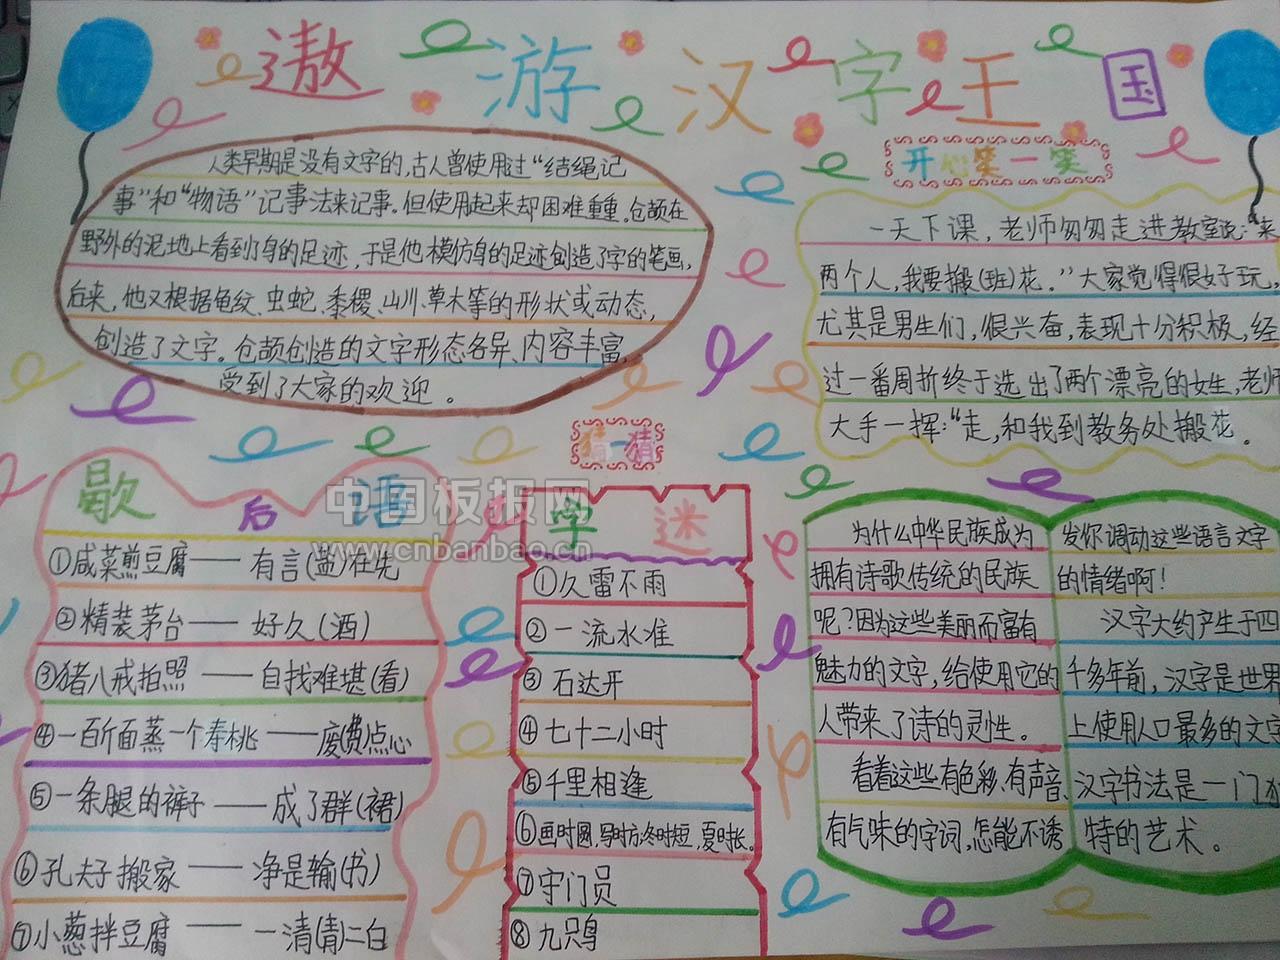 遨游汉字王国
人类早期是没有文字的,古人曾使用过“结绳记
事”和“物语”记事法来记事。但使用起来却困难重重。仓颉在
野外的泥地上看到了鸟的足迹,于是他模仿鸟的足迹创造了字的笔画,
后来,他又根据龟纹、虫蛇、黍稷、山川、草木等的形状或动态,
创造了文字。仓颉创造的文字形态各异、内容丰富,
受到了大家的欢迎。
开心笑一笑
一天下课,老师匆匆走进教室说:“来
两个人,我要搬(班)花。”大家觉得很好玩,
尤其是男生们,很兴奋,表现十分积极,经
过一番周折终于选出了两个漂亮的女生,老师
大手一挥:“走,和我到教务处搬花。
歇后语
①咸菜煎豆腐——有言(盐)在先
②精装茅台——好久(酒)
③猪八戒拍照——自找难堪(看)
④一百斤面蒸一个寿桃——废费点心
⑤一条腿的裤子——成了群(裙)
⑥孔夫子搬家——净是输(书)
⑦小葱拌豆腐——一清(青)二白
猜一猜
字迷
①久雷不雨
②一流水准
③石达开
④七十二小时
⑤千里相逢
⑥画时圆,写时方,冬时短,夏时长。
⑦守门员
⑧九只鸟
为什么中华民族成为
拥有诗歌传统的民族
呢?因为这些美丽而富有
魅力的文字,给使用它的
人带来了诗的灵性。
看着这些有色彩、有声音、
有气味的字词,怎能不诱
发你调动这些语言文字
的情绪啊!
汉字大约产生于四
千多年前,汉字是世界
上使用人口最多的文字
汉字书法是一门独
特的艺术。
中国板报网
www.cnbanbao.cn